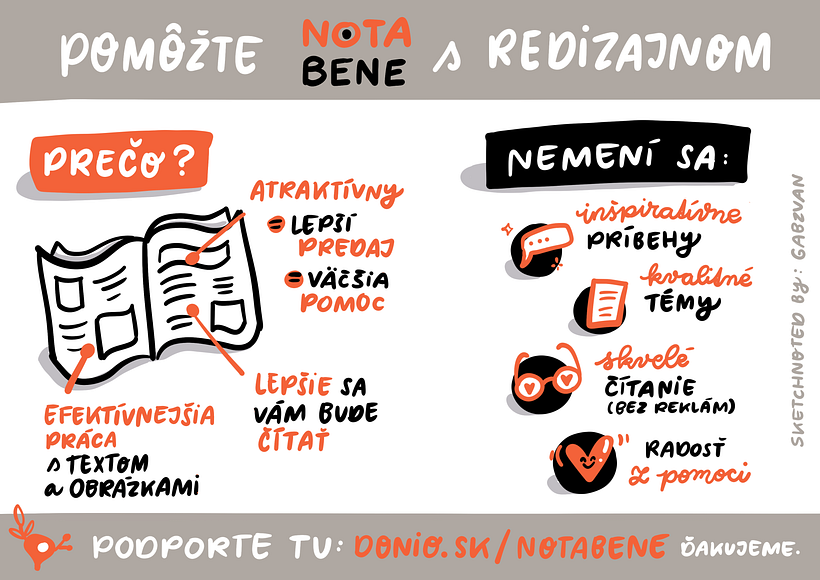 POMÔŽTE NOTA BENE s REDIZAJNOM
PREČO?
ATRAKTÍVNY
= LEPŠÍ
PREDAJ
= VÄČŠIA
POMOC
LEPŠIE SA
VÁM BUDE
ČÍTAŤ
EFEKTÍVNEJŠIA
PRÁCA
s TEXTOM
a OBRÁZKAMI
NEMENÍ SA:
inšpiratívne
PRÍBEHY
kvalitné
TÉMY
skvelé
ČÍTANIE
(BEZ REKLÁM)
RADOSŤ
z pomoci
SKETCHNOTED By: GABZVAN
PODPORTE TU: DONIO.SK/NOTABENE ĎAKUJEME.